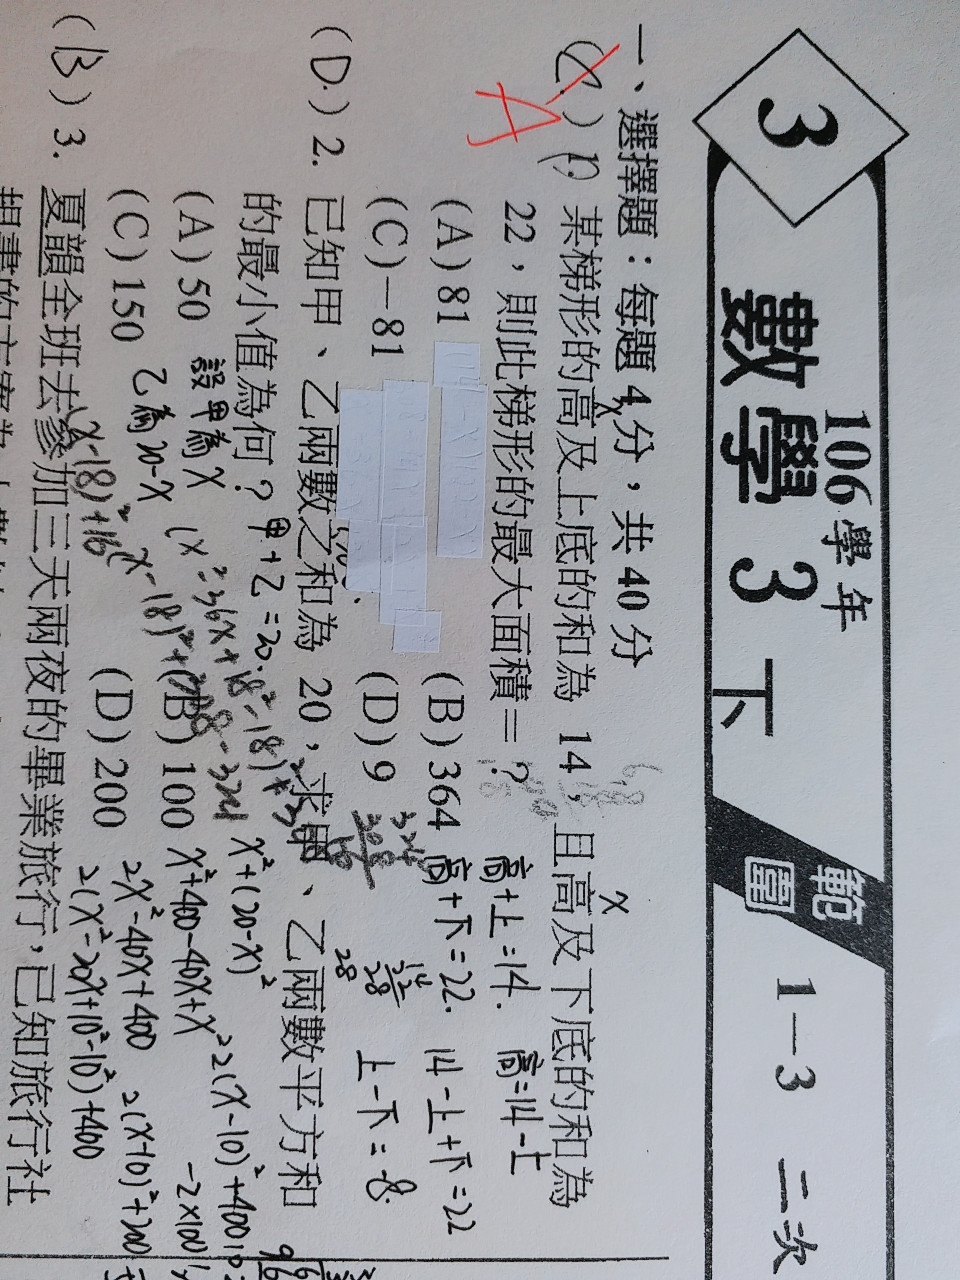 106學年
3 數學 3 下 範圍 1－3 二次
一、選擇題：每題 4 分，共 40 分
A
( ) 1. 某梯形的高及上底的和為 14，且高及下底的和為
x x
22，則此梯形的最大面積＝？
高+上=14. 高=14-上
(A) 81 (B) 364
高+下=22. 14-上+下=22
(C) －81 (D) 9
上-下=-8.
(D.) 2. 已知甲、乙兩數之和為 20，求甲、乙兩數平方和
的最小值為何？ 甲+乙=20. x²+(20-x)²
(A) 50 設甲為x (B) 100 x²+400-40x+x² 2(x-10)²+400
(C) 150 乙為20-x (D) 200 2x²-40x+400 2(x-10)²+200
2(x²-20x+10²-10²)+400
-2×100
(x-18)²+16
(B) 3. 夏韻全班去參加三天兩夜的畢業旅行，已知旅行社